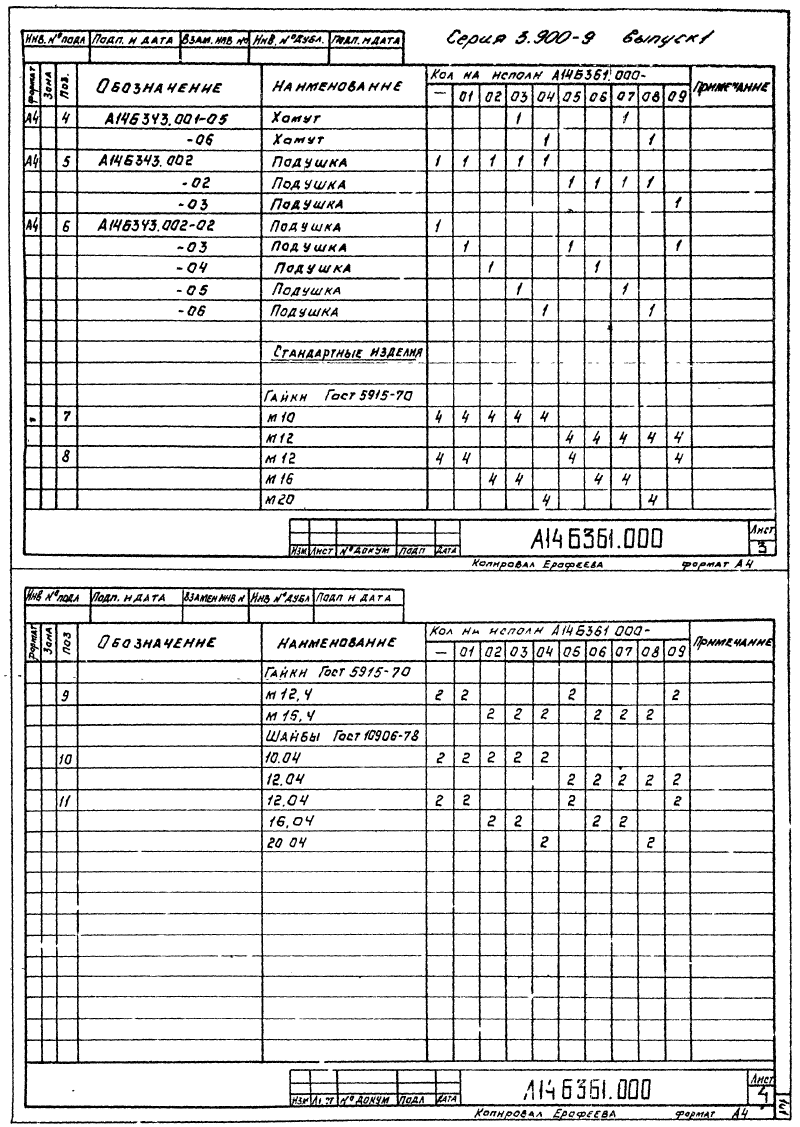 Инв. № подл Подп. и дата Взам. инв № Инв. № дубл. Подп. и дата Серия 3.900-9 Выпуск 1
Формат Зона Поз. Обозначение Наименование Кол на исполн А14Б361.000- Примечание
— 01 02 03 04 05 06 07 08 09
А4 4 А14Б343.001-05 Хомут 1 1
-06 Хомут 1 1
А4 5 А14Б343.002 Подушка 1 1 1 1 1
-02 Подушка 1 1 1 1
-03 Подушка 1
А4 6 А14Б343.002-02 Подушка 1
-03 Подушка 1 1 1
-04 Подушка 1 1
-05 Подушка 1 1
-06 Подушка 1 1
Стандартные изделия
Гайки Гост 5915-70
7 М10 4 4 4 4 4
М12 4 4 4 4 4
8 М12 4 4 4 4
М16 4 4 4 4
М20 4 4
Изм Лист № докум Подп Дата А14Б361.000 Лист 3
Копировал Ерофеева формат А4
Инв № подл Подп. и дата Взамен инв № Инв № дубл Подп и дата
Формат Зона Поз Обозначение Наименование Кол на исполн А14Б361 000- Примечание
— 01 02 03 04 05 06 07 08 09
Гайки Гост 5915-70
9 М12,4 2 2 2 2
М16,4 2 2 2 2 2 2
Шайбы Гост 10906-78
10 10.04 2 2 2 2 2
12.04 2 2 2 2 2
11 12.04 2 2 2 2
16,04 2 2 2 2
20 04 2 2
Изм Лист № докум Подп Дата А14Б361.000 Лист 4
Копировал Ерофеева формат А4